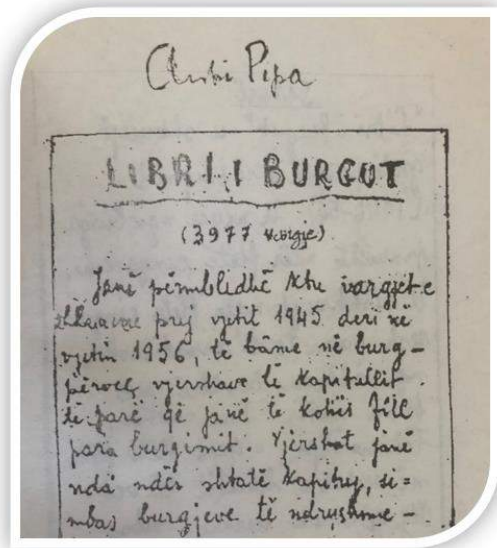 Arshi Pipa
LIBRI I BURGUT
(3977 vargje)
Janë përmbledhë këtu vargjet e
shkrueme prej vjetit 1945 deri në
vjetin 1956, të bâme në burg-
përveç vjershave të kapitullit
të parë që janë të kohës fill
para burgimit. Vjershat janë
nda ndër shtatë kapituj, si=
mbas burgjeve të ndryshme-